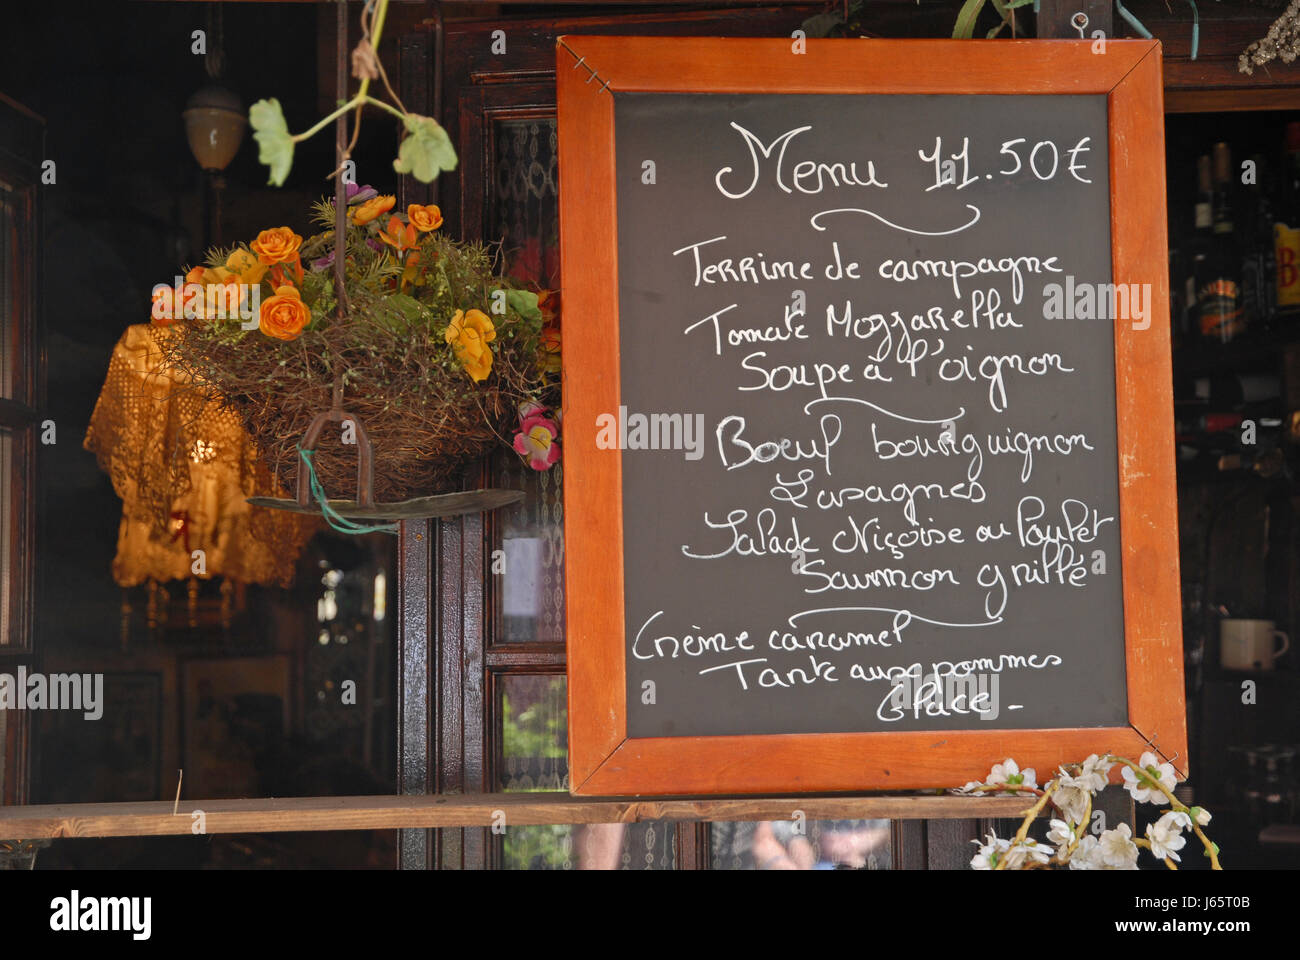 Menu 11.50€
Terrine de campagne
Tomate Mozzarella
Soupe à l'oignon
Boeuf bourguignon
Lasagnes
Salade Niçoise ou Poulet
Saumon grillé
Crème caramel
Tarte aux pommes
Glace -
alamy
Image ID: J65T0B
www.alamy.com